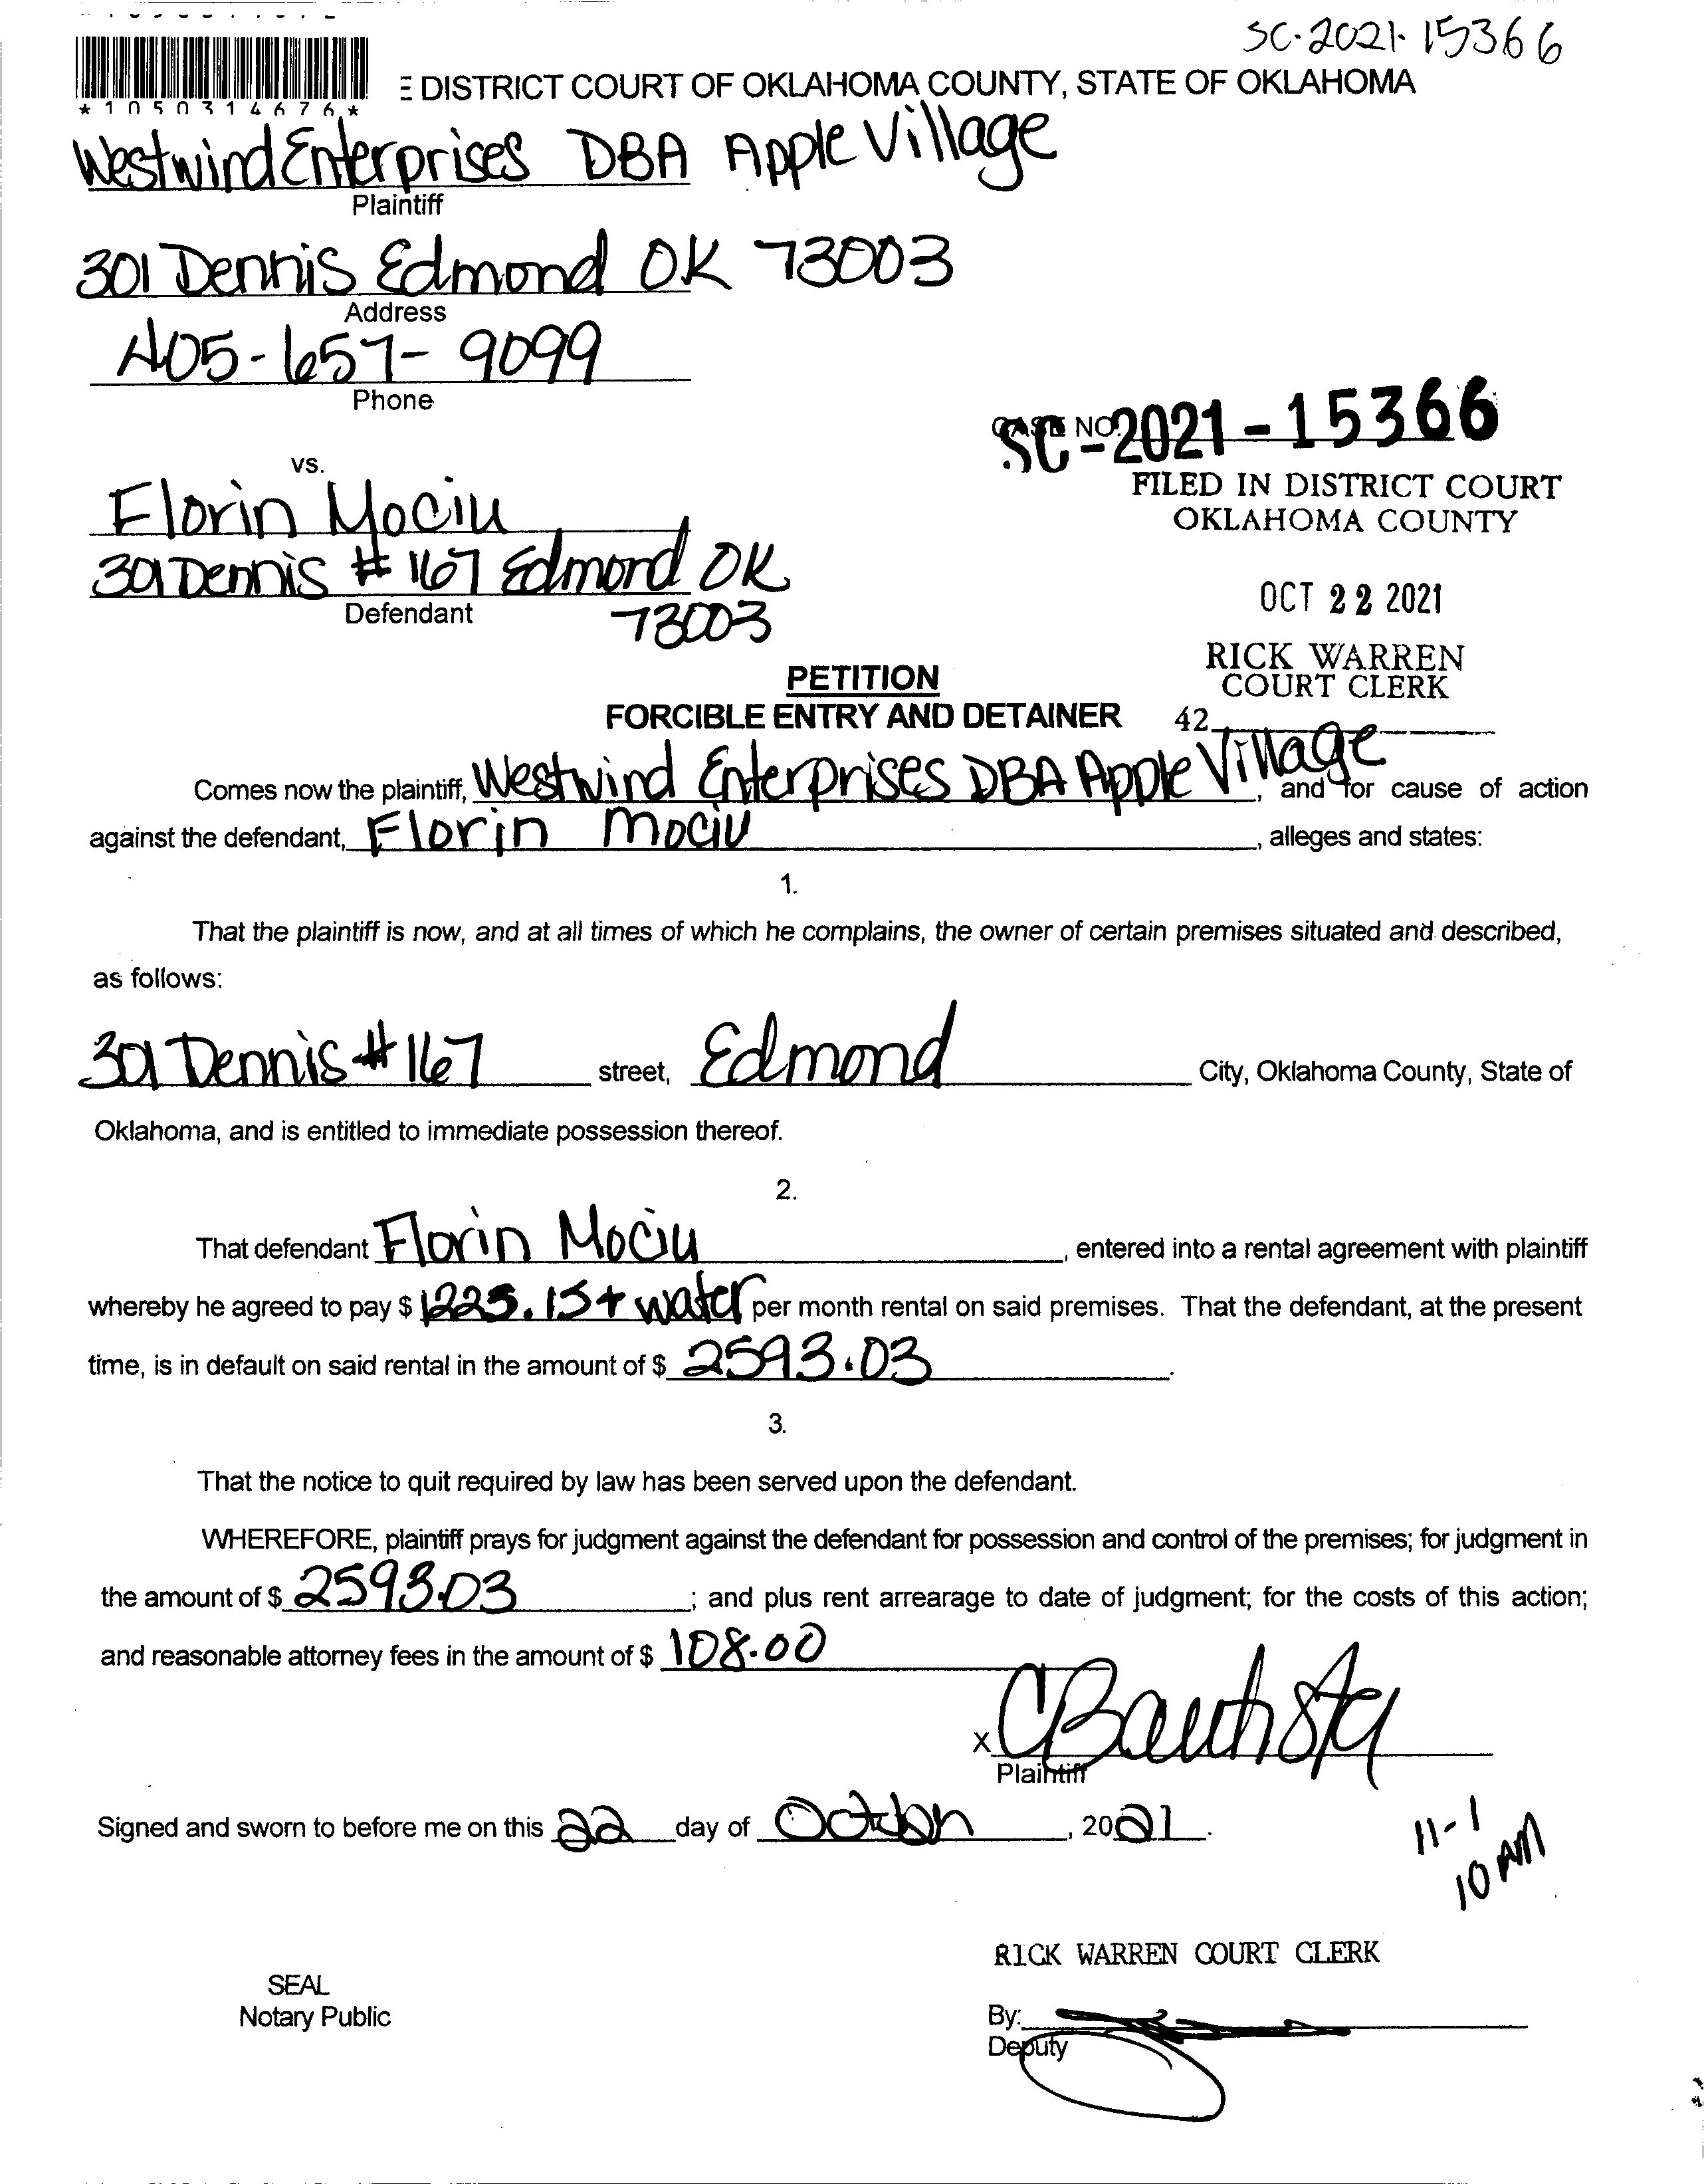 SC-2021-15366
E DISTRICT COURT OF OKLAHOMA COUNTY, STATE OF OKLAHOMA
*1050314676*
Westwind Enterprises DBA Apple Village
Plaintiff
301 Dennis Edmond OK 73003
Address
405-657-9099
Phone
CASE NO.
SC-2021-15366
vs.
FILED IN DISTRICT COURT
OKLAHOMA COUNTY
Florin Mociu
301 Dennis #167 Edmond OK
73003
Defendant
OCT 22 2021
RICK WARREN
COURT CLERK
42
PETITION
FORCIBLE ENTRY AND DETAINER
Comes now the plaintiff, Westwind Enterprises DBA Apple Village, and for cause of action
against the defendant, Florin Mociu, alleges and states:
1.
That the plaintiff is now, and at all times of which he complains, the owner of certain premises situated and described,
as follows:
301 Dennis #167 street, Edmond City, Oklahoma County, State of
Oklahoma, and is entitled to immediate possession thereof.
2.
That defendant Florin Mociu, entered into a rental agreement with plaintiff
whereby he agreed to pay $ 1225.15 + water per month rental on said premises. That the defendant, at the present
time, is in default on said rental in the amount of $ 2593.03.
3.
That the notice to quit required by law has been served upon the defendant.
WHEREFORE, plaintiff prays for judgment against the defendant for possession and control of the premises; for judgment in
the amount of $ 2593.03; and plus rent arrearage to date of judgment; for the costs of this action;
and reasonable attorney fees in the amount of $ 108.00
x CBautista
Plaintiff
Signed and sworn to before me on this 22 day of October, 2021.
11-1
10 AM
RICK WARREN COURT CLERK
SEAL
Notary Public
By:
Deputy